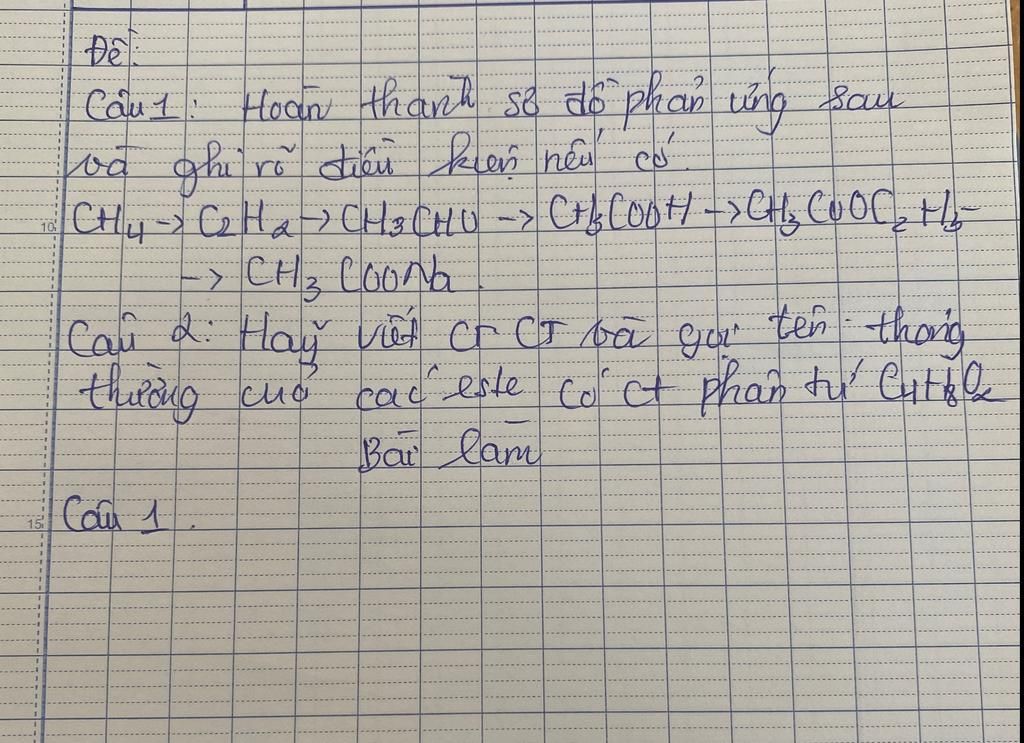 Đề:
Câu 1: Hoàn thành sơ đồ phản ứng sau
và ghi rõ điều kiện nếu có.
10 CH4 -> C2H2 -> CH3CHO -> CH3COOH -> CH3COOC2H5-
-> CH3COONa.
Câu 2: Hãy viết CTCT và gọi tên thông
thường của các este có ct phân tử C4H8O2
Bài làm
15 Câu 1.